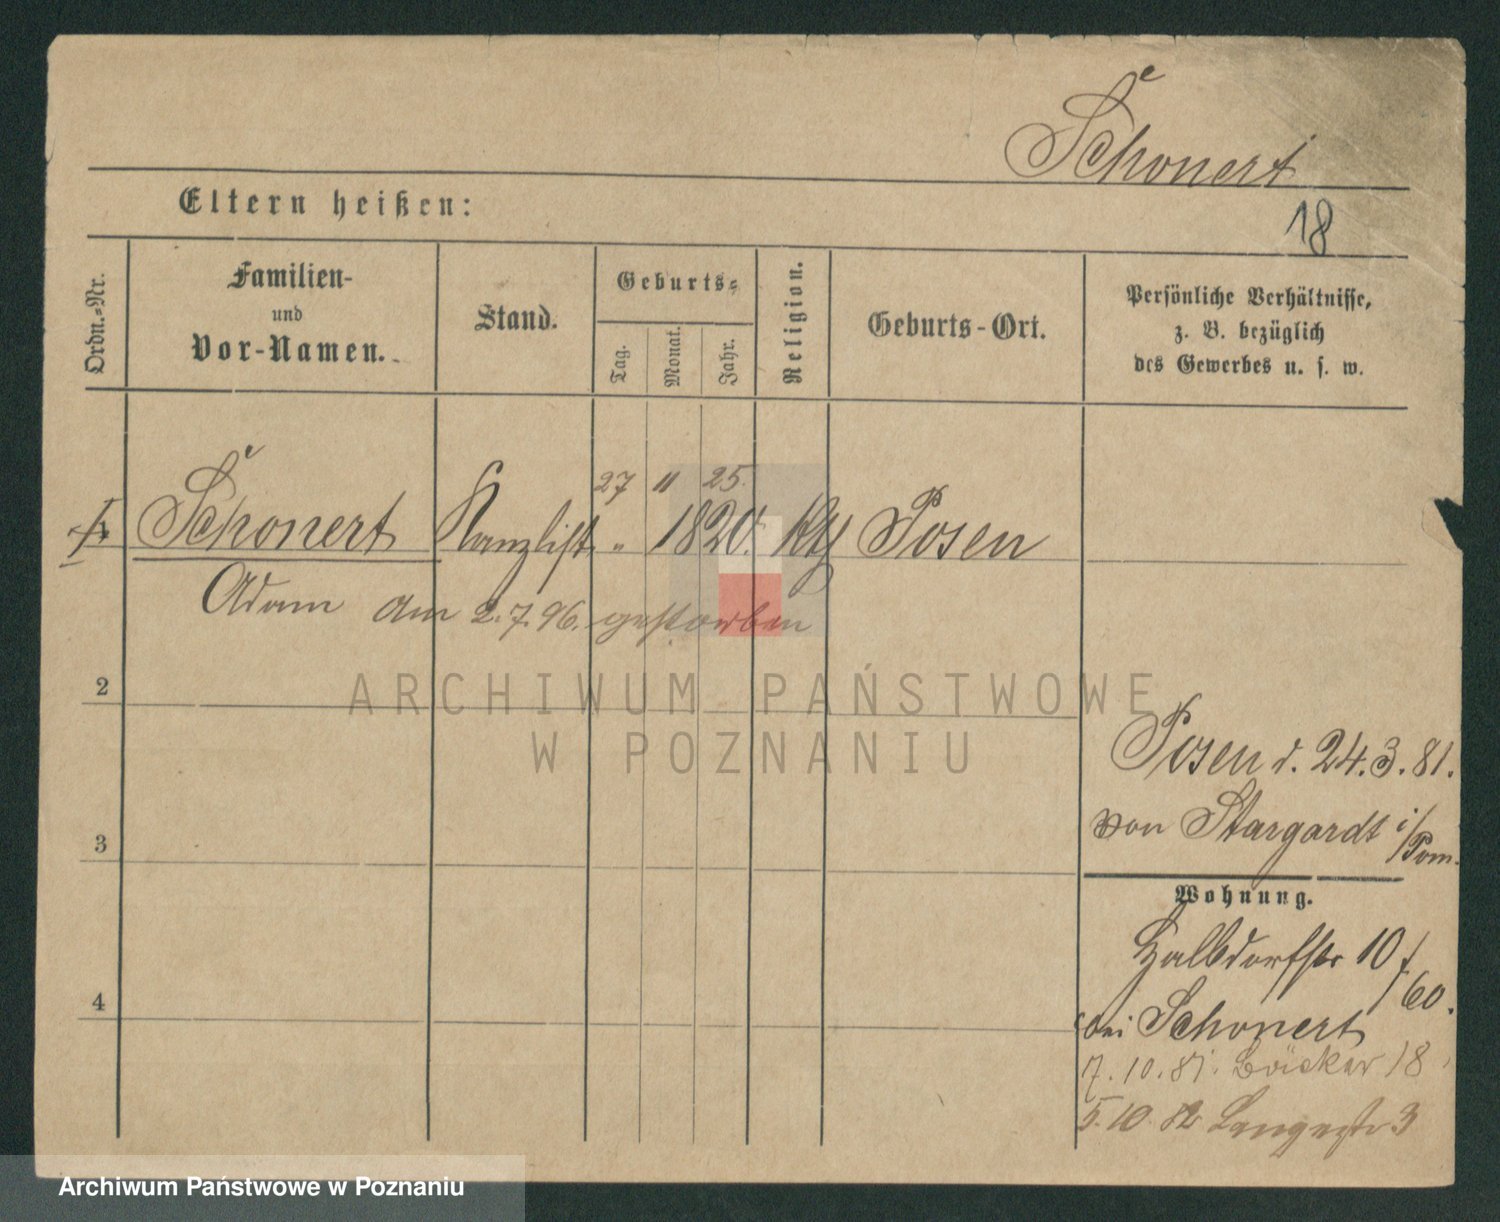 Schonert
Eltern heißen:
18
Ordn.-Nr.
Familien-
und
Vor-Namen.
Stand.
Geburts-
Tag.
Monat.
Jahr.
Religion.
Geburts-Ort.
Persönliche Verhältnisse,
z. B. bezüglich
des Gewerbes u. s. w.
27 11 25.
Schonert Kanzlist " 1820. Kth Posen
Adam am 2.7.96. gestorben
2
3
4
Posen d. 24.3.81.
von Stargardt i/Pom.
Wohnung.
Halbdorfstr 10/60.
bei Schonert
7.10.81. Bäcker 18
5.10.82 Langestr 3
ARCHIWUM PAŃSTWOWE
W POZNANIU
Archiwum Państwowe w Poznaniu